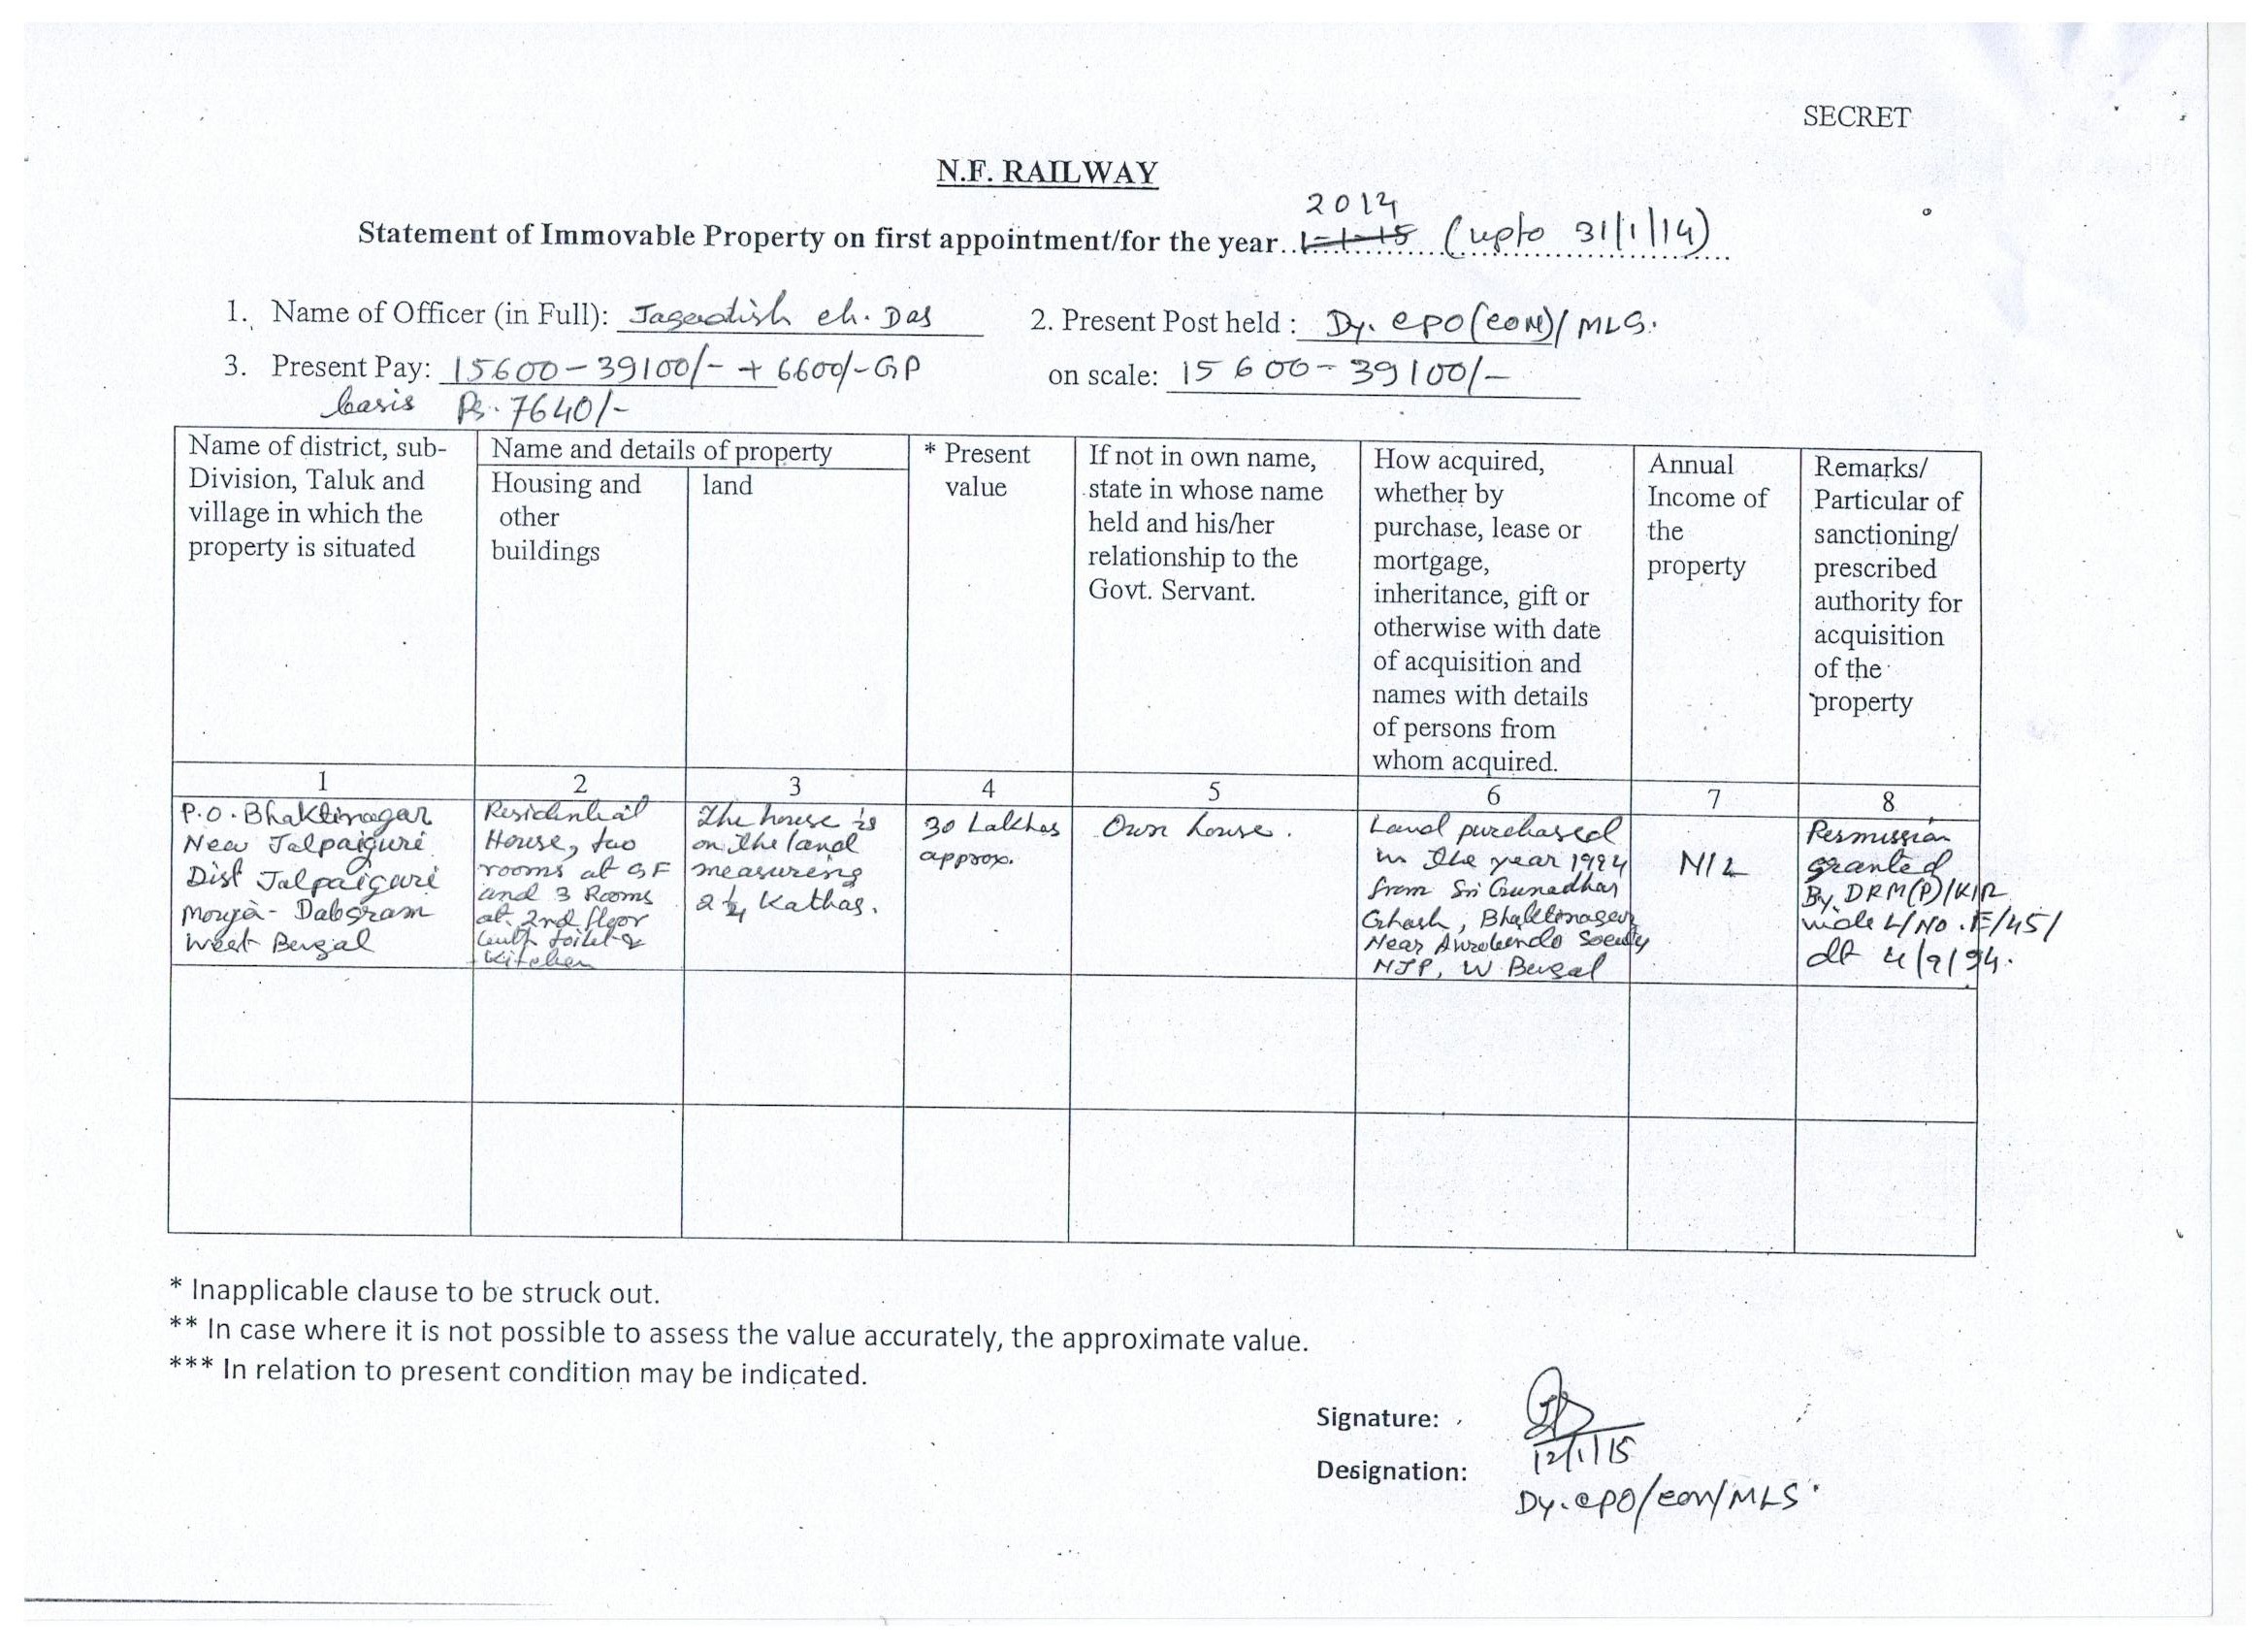 SECRET
N.F. RAILWAY
2014
Statement of Immovable Property on first appointment/for the year..1-1-15...(upto 31/1/14)
1. Name of Officer (in Full): Jagadish ch. Das 2. Present Post held : Dy. CPO(CON)/MLG.
3. Present Pay: 15600-39100/- + 6600/-GP on scale: 15600-39100/-
basis Rs. 7640/-
Name of district, sub-
Division, Taluk and
village in which the
property is situated
Name and details of property
Housing and
other
buildings
land
* Present
value
If not in own name,
state in whose name
held and his/her
relationship to the
Govt. Servant.
How acquired,
whether by
purchase, lease or
mortgage,
inheritance, gift or
otherwise with date
of acquisition and
names with details
of persons from
whom acquired.
Annual
Income of
the
property
Remarks/
Particular of
sanctioning/
prescribed
authority for
acquisition
of the
property
1 2 3 4 5 6 7 8
P.O. Bhaktinagar
New Jalpaiguri
Dist Jalpaiguri
Mouja- Dabgram
West Bengal
Residential
House, two
rooms at GF
and 3 Rooms
at 2nd floor
with toilet &
kitchen
The house is
on the land
measuring
2 1/4 Kathas.
30 Lakhas
approx.
Own house.
Land purchased
in the year 1994
from Sri Gunadhar
Ghosh, Bhaktinagar
Near Society
NJP, W Bengal
NIL
Permission
granted
By DRM(P)/KIR
vide L/No. E/45/
dt 4/9/94.
* Inapplicable clause to be struck out.
** In case where it is not possible to assess the value accurately, the approximate value.
*** In relation to present condition may be indicated.
Signature:
12/1/15
Designation:
Dy. CPO/CON/MLG.